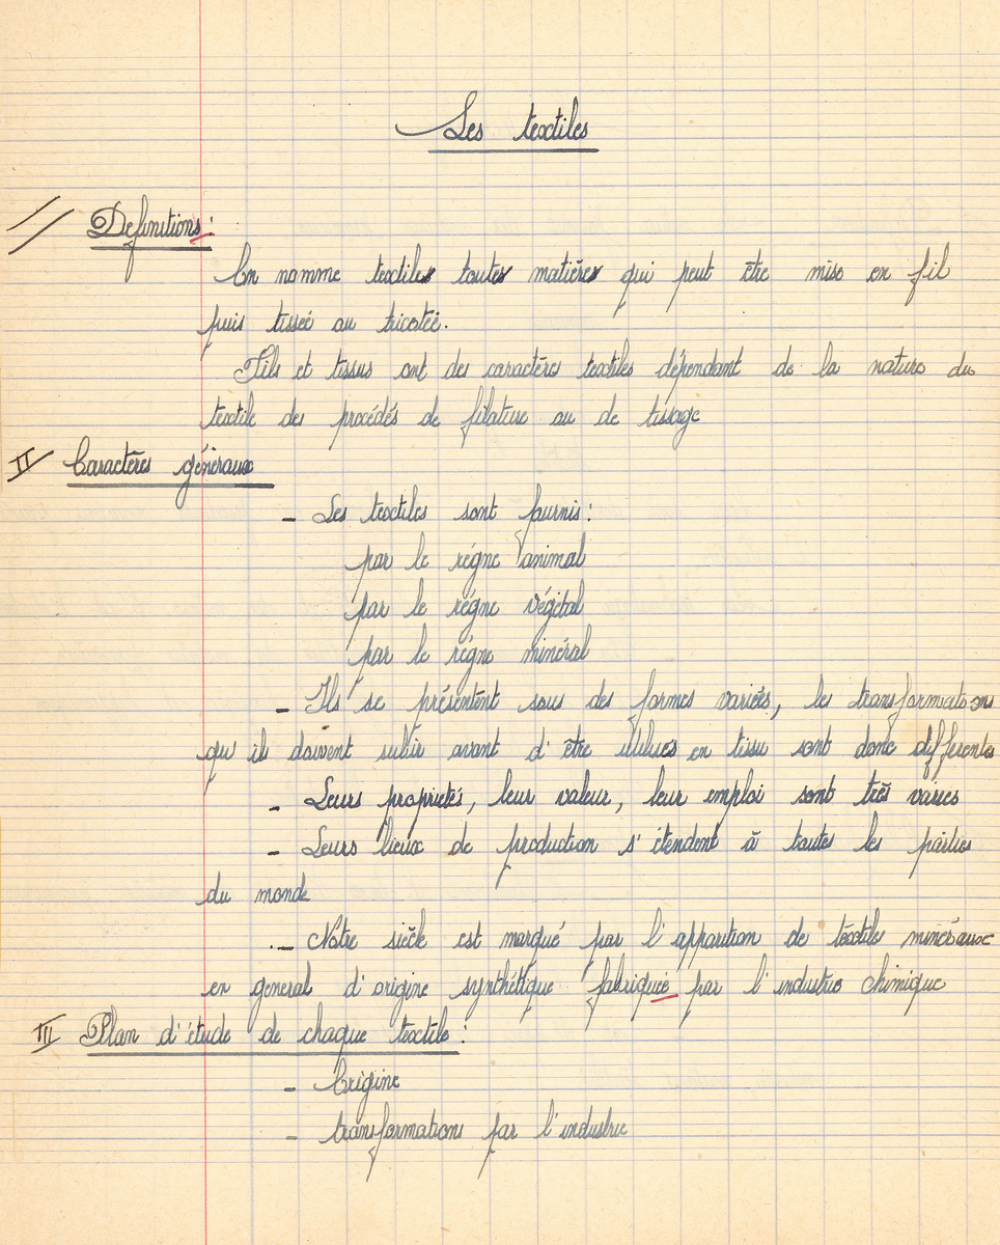 Les textiles
I/ Definitions:
On nomme textiles toutes matières qui peut être mise en fil
puis tissée ou tricotée.
Fils et tissus ont des caractères textiles dépendant de la nature du
textile des procédés de filature ou de tissage
II/ Caractères généraux
- Les textiles sont fournis:
par le règne animal
par le règne végétal
par le règne minéral
- Ils se présentent sous des formes variées, les transformations
qu'ils doivent subir avant d'être utilises en tissu sont donc differentes
- Leurs propriétés, leur valeur, leur emploi sont très variés
- Leurs lieux de production s'étendent à toutes les parties
du monde
- Notre siècle est marqué par l'apparition de textile minéraux
en general d'origine synthétique fabriquée par l'industrie chimique
III/ Plan d'étude de chaque textile:
- Origine
- transformations par l'industrie